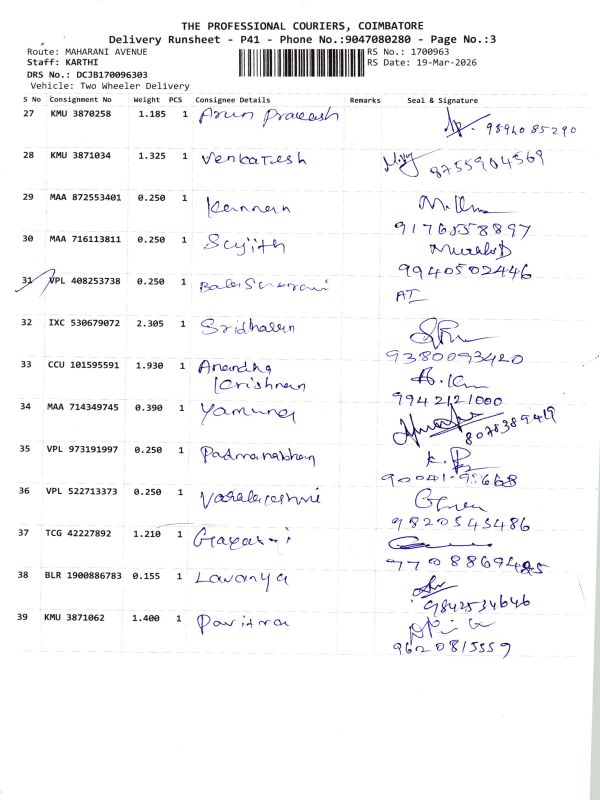 THE PROFESSIONAL COURIERS, COIMBATORE
Delivery Runsheet - P41 - Phone No.:9047080280 - Page No.:3
Route: MAHARANI AVENUE RS No.: 1700963
Staff: KARTHI RS Date: 19-Mar-2026
DRS No.: DCJB170096303
Vehicle: Two Wheeler Delivery
S No Consignment No Weight PCS Consignee Details Remarks Seal & Signature
27 KMU 3870258 1.185 1 Arun Prakash 9894085290
28 KMU 3871034 1.325 1 Venkatesh 8755904569
29 MAA 872553401 0.250 1 Kannan
9176558897
30 MAA 716113811 0.250 1 Sujith
9940502446
31 VPL 408253738 0.250 1 AI
32 IXC 530679072 2.305 1 Sridharan
9380093420
33 CCU 101595591 1.930 1 Anandha
Krishnan
9942121000
34 MAA 714349745 0.390 1 Yamuna
8078389419
35 VPL 973191997 0.250 1 Padmanabhan
36 VPL 522713373 0.250 1
9820543486
37 TCG 42227892 1.210 1 Gayatri
38 BLR 1900886783 0.155 1 Lavanya
9842534646
39 KMU 3871062 1.400 1 Pavitra
9620815559